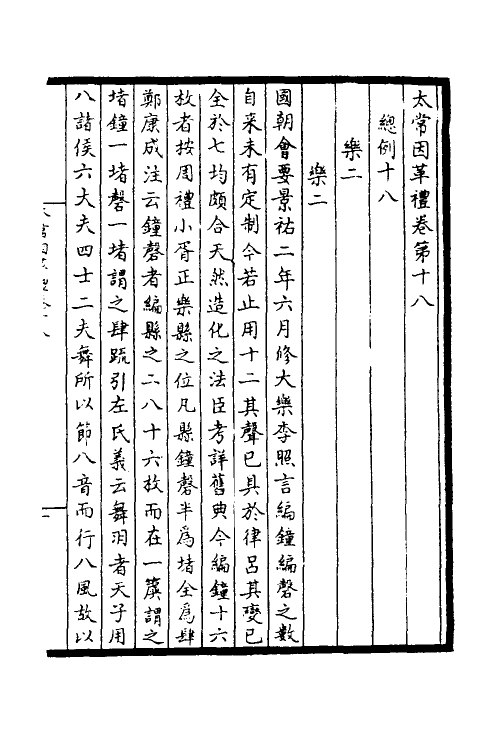 太常因革禮卷第十八
總例十八
樂二
樂二
國朝會要景祐二年六月修大樂李照言編鐘編磬之數
自来未有定制今若止用十二其聲已具於律呂其變已
全於七均頗合天然造化之法臣考詳舊典今編鐘十六
枚者按周禮小胥正樂縣之位凡縣鐘磬半為堵全為肆
鄭康成注云鐘磬者編縣之二八十六枚而在一簴謂之
堵鐘一堵磬一堵謂之肆䟽引左氏義云舞羽者天子用
八諸侯六大夫四士二夫舞所以節八音而行八風故以